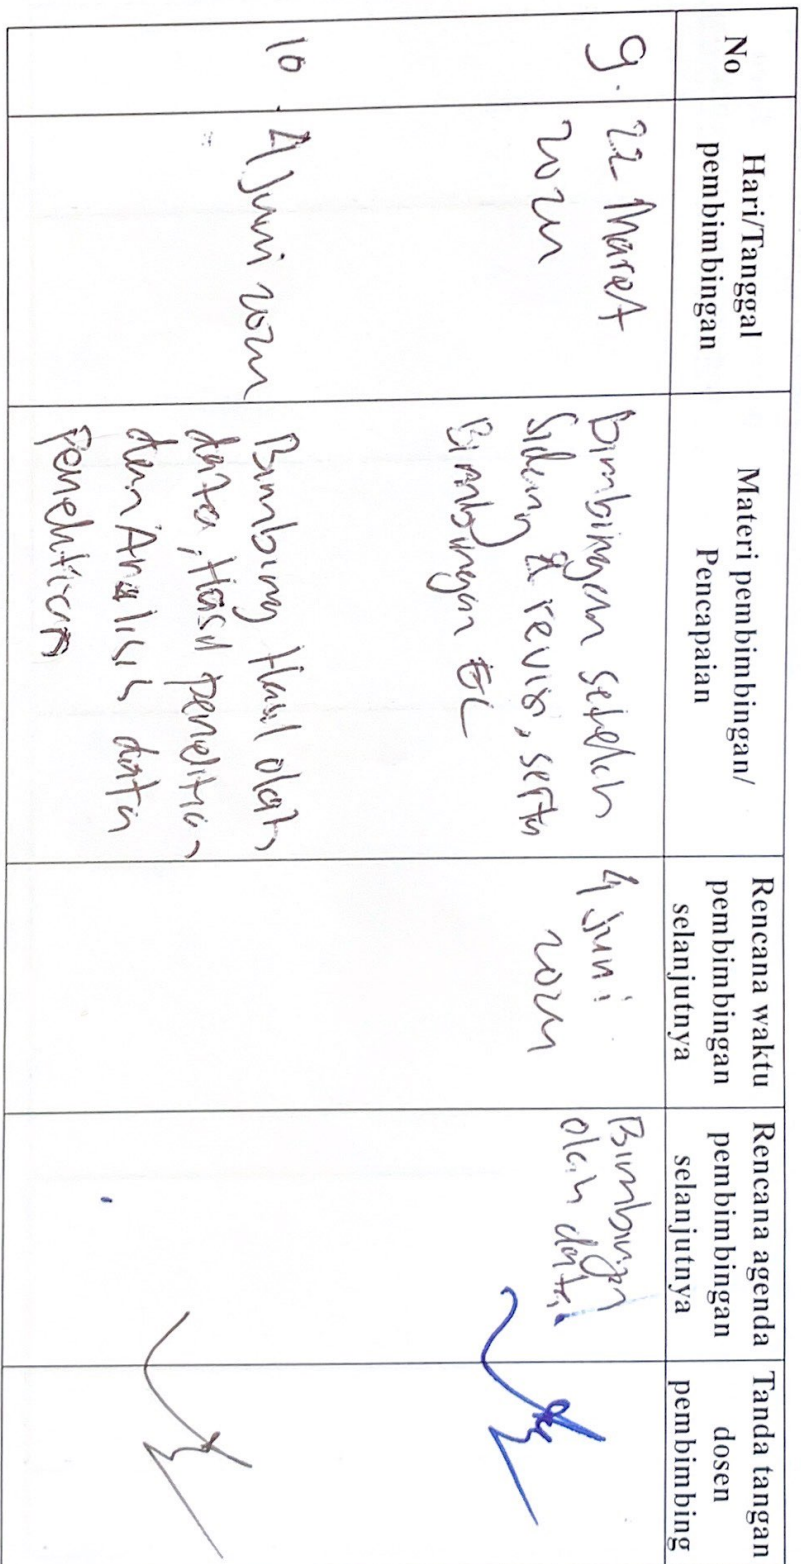 No
Hari/Tanggal
pembimbingan
Materi pembimbingan/
Pencapaian
Rencana waktu
pembimbingan
selanjutnya
Rencana agenda
pembimbingan
selanjutnya
Tanda tangan
dosen
pembimbing
9.
22 Maret
2024
Bimbingan setelah
Sidang & revisi, serta
Bimbingan EC
4 Juni
2024
Bimbingan
olah data
10.
4 Juni 2024
Bimbing Hasil olah
data, Hasil penelitian
dan Analisis data
Penelitian